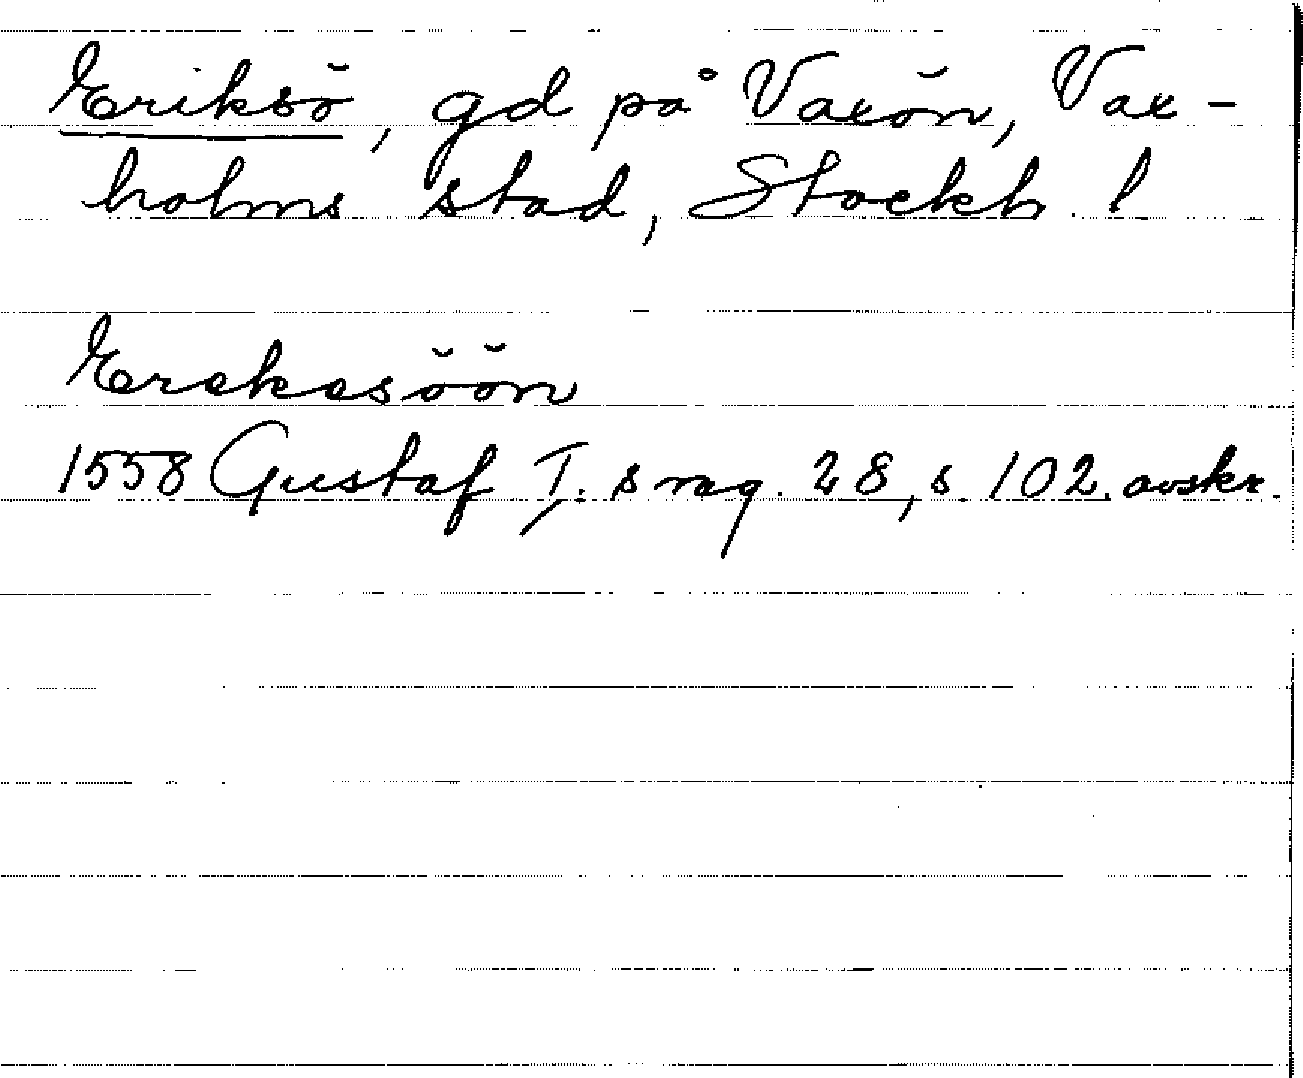 Eriksö, gd på Vaxön, Vax-
holms stad, Stockh l
Erekesöön
1558 Gustaf I:s reg. 28, s. 102. avskr.